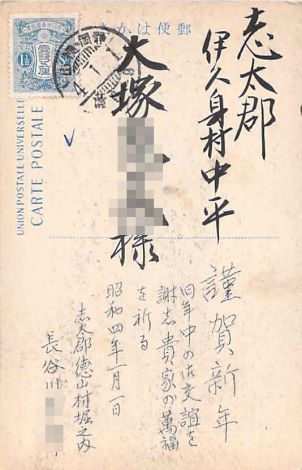 郵便はかき
UNION POSTALE UNIVERSELLE
CARTE POSTALE
志太郡
伊久身村中平
大塚
様
謹賀新年
旧年中の御交誼を
謝し貴家の萬福
を祈る
昭和四年一月一日
志太郡徳山村堀之内
長谷川